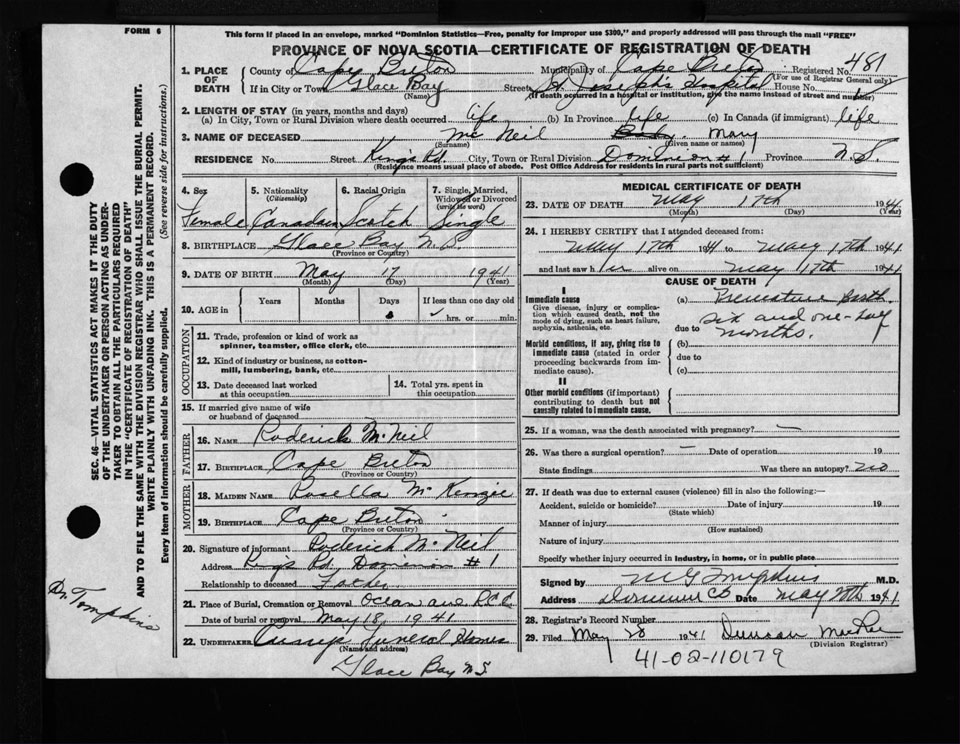 FORM 6
This form if placed in an envelope, marked "Dominion Statistics—Free, penalty for improper use $300," and properly addressed will pass through the mail "FREE"
PROVINCE OF NOVA SCOTIA—CERTIFICATE OF REGISTRATION OF DEATH
SEC. 46—VITAL STATISTICS ACT MAKES IT THE DUTY
OF THE UNDERTAKER OR PERSON ACTING AS UNDER-
TAKER TO OBTAIN ALL THE PARTICULARS REQUIRED
IN THE "CERTIFICATE OF REGISTRATION OF DEATH"
AND TO FILE THE SAME WITH THE DIVISION REGISTRAR WHO SHALL ISSUE THE BURIAL PERMIT.
WRITE PLAINLY WITH UNFADING INK. THIS IS A PERMANENT RECORD.
Every item of information should be carefully supplied. (See reverse side for instructions.)
Dr Tompkins
1. PLACE OF DEATH
County of Cape Breton Municipality of Cape Breton Registered No. 481
(For use of Registrar General only)
If in City or Town Glace Bay Street St. Joseph's Hospital House No.
(Name) (If death occurred in a hospital or institution, give the name instead of street and number)
2. LENGTH OF STAY (in years, months and days)
(a) In City, Town or Rural Division where death occurred life (b) In Province life (c) In Canada (if immigrant) life
3. NAME OF DECEASED Mc Neil Baby. Mary
(Surname) (Given name or names)
RESIDENCE No. Street King's Rd. City, Town or Rural Division Dominion #1 Province N.S.
(Residence means usual place of abode. Post Office Address for residents in rural parts not sufficient)
4. Sex 5. Nationality (Citizenship) 6. Racial Origin 7. Single, Married, Widowed or Divorced (write the word)
Female Canadian Scotch Single
8. BIRTHPLACE Glace Bay
(Province or Country)
9. DATE OF BIRTH May 17 1941
(Month) (Day) (Year)
10. AGE in Years Months Days If less than one day old
hrs. or min.
OCCUPATION
11. Trade, profession or kind of work as
spinner, teamster, office clerk, etc.
12. Kind of industry or business, as cotton-
mill, lumbering, bank, etc.
13. Date deceased last worked
at this occupation
14. Total yrs. spent in
this occupation
15. If married give name of wife
or husband of deceased
FATHER
16. NAME Roderick McNeil
17. BIRTHPLACE Cape Breton
(Province or Country)
MOTHER
18. MAIDEN NAME Rosella McKenzie
19. BIRTHPLACE Cape Breton
(Province or Country)
20. Signature of informant Roderick McNeil
Address Kings Rd, Dominion #1
Relationship to deceased Father
21. Place of Burial, Cremation or Removal Ocean ave
Date of burial or removal May 18, 1941
22. UNDERTAKER Funeral Homes
(Name and address)
Glace Bay N.S
MEDICAL CERTIFICATE OF DEATH
23. DATE OF DEATH May 17th 1941
(Month) (Day) (Year)
24. I HEREBY CERTIFY that I attended deceased from:
May 17th 1941 to May 17th 1941
and last saw her alive on May 17th 1941
CAUSE OF DEATH
I
Immediate cause
Give disease, injury or compli-
cation which caused death, not the
mode of dying, such as heart failure,
asphyxia, asthenia, etc.
(a) Premature birth
six and one-half
due to months.
Morbid conditions, if any, giving rise to
immediate cause (stated in order
proceeding backwards from im-
mediate cause).
(b)
due to
(c)
II
Other morbid conditions (if important)
contributing to death but not
causally related to immediate cause.
25. If a woman, was the death associated with pregnancy? —
26. Was there a surgical operation? — Date of operation 19
State findings Was there an autopsy? no
27. If death was due to external causes (violence) fill in also the following:—
Accident, suicide or homicide? Date of injury 19
(State which)
Manner of injury
(How sustained)
Nature of injury
Specify whether injury occurred in industry, in home, or in public place
Signed by Tompkins M.D.
Address Dominion CB Date May 1941
28. Registrar's Record Number
29. Filed May 28 1941 Duncan MacRae
(Division Registrar)
41-02-110179